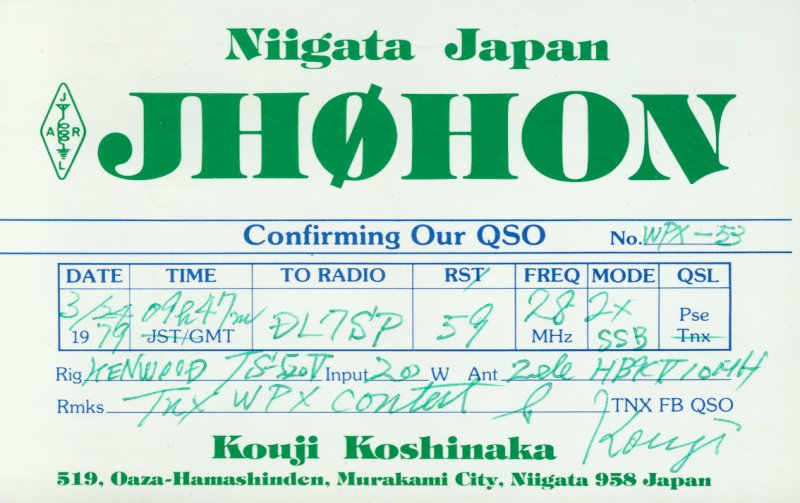 Niigata Japan
JARL
JHØHON
Confirming Our QSO No. WPX-53
DATE TIME TO RADIO RST FREQ MODE QSL
3/24 09h47m DL7SP 59 28 2x Pse
1979 JST/GMT MHz SSB Tnx
Rig KENWOOD TS-520V Input 200 W Ant 2ele HB9CV 10MH
Rmks Tnx WPX contest TNX FB QSO
Kouji
Kouji Koshinaka
519, Oaza-Hamashinden, Murakami City, Niigata 958 Japan